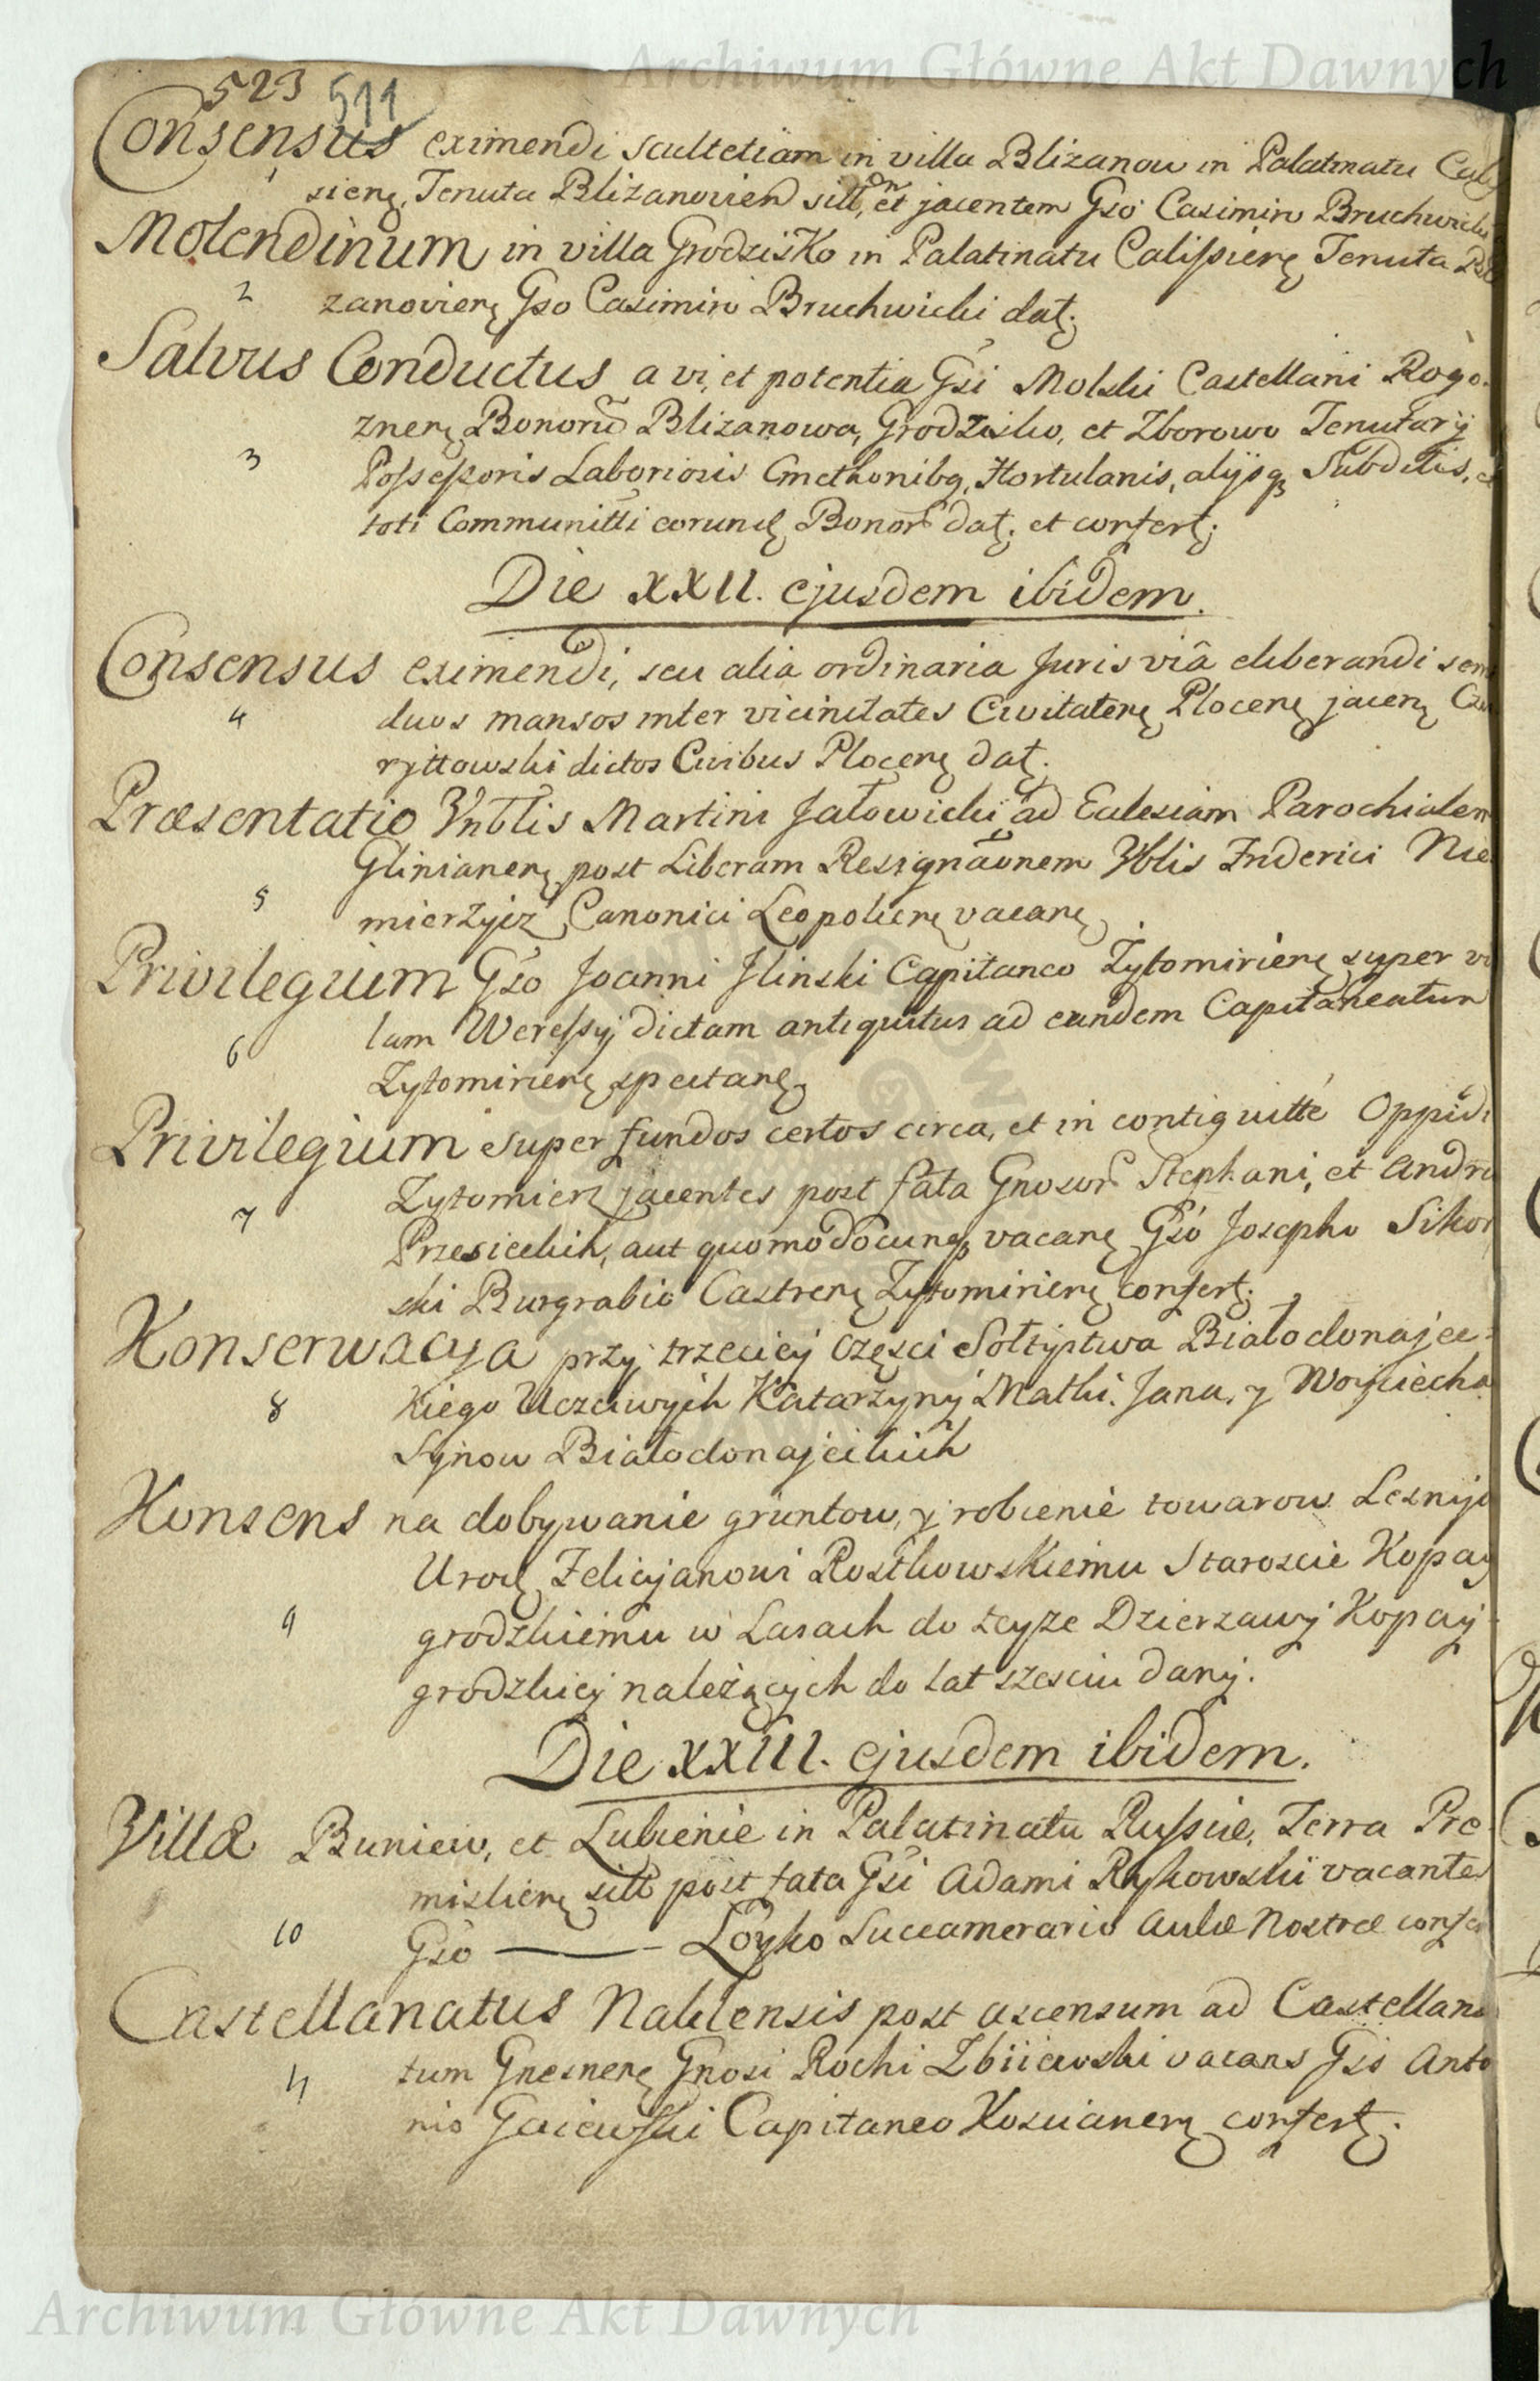 Archiwum Główne Akt Dawnych
523 511
Consensus eximendi scultetiam in villa Blizanow in Palatinatu Cali
1
sien, Tenuta Blizanovien sit, et jacentem Gso Casimiro Bruchwicki
Molendinum in villa Grodzisko in Palatinatu Calissien Tenuta Bli
2
zanovien Gso Casimiro Bruchwicki dat.
Salvus Conductus a vi, et potentia Gsi Molski Castellani Rogo-
znen Bonorũ Blizanowa, Grodzisko, et Zborowo Tenutarÿ
3
Possessoris Laboriosis Cmethonibq, Hortulanis, alÿsq Subditis, et
toti Communitti eorund Bonor dat. et confert.
Die XXII. ejusdem ibidem.
Consensus eximendi, seu alia ordinaria Juris viâ eliberandi
4
duos mansos inter vicinitates Civitaten Plocen jacen
ryttowski dictos Civibus Plocen dat.
Præsentatio Vnblis Martini Jałowicki ad Eclesiam Parochialem
Glinianen post Liberam Resignãonem Vblis Friderici Nie
5
mierzyiz Canonici Leopolien vacan
Privilegium Gso Joanni Jlinski Capitaneo Żytomirien super vi
6
lam Weressy dictam antiquitus ad eundem Capitaneatum
Zytomirien spectan
Privilegium super fundos certos circa, et in contiguitté Oppidi
Zytomierz jacentes post fata Gnosor Stephani, et Andre
7
Przesieckich, aut quomodocunq vacan Gso Josepho Sikor
ski Burgrabio Castren Zytomirien confert.
Konserwacya przy trzeciey części Sołtystwa Białodonajec-
8
kiego Uczciwych Katarzyny Matki. Jana, y Woyciecha
Synow Białodonajeckich
Konsens na dobywanie gruntow, y robienie towarow Lesnych
Urod Felicyanowi Rostkowskiemu Staroscie Kopay
9
grodzkiemu w Lasach do teyże Dzierzawy Kopay-
grodzkiey należących do lat szesciu dany.
Die XXIII. ejusdem ibidem.
Villæ Buniew, et Lubienie in Palatinatu Russiæ, Terra Pre-
mislien sitt post fata Gsi Adami Rykowski vacantes
10
Gso ——— Łoyko Succamerario Aulæ Nostræ confer
Castellanatus Naklensis post ascensum ad Castellana
tum Gnesnen Gnosi Rochi Zbiiewski vacans Gso Anto
11
nio Gaiewski Capitaneo Koscianen confert.
Archiwum Główne Akt Dawnych